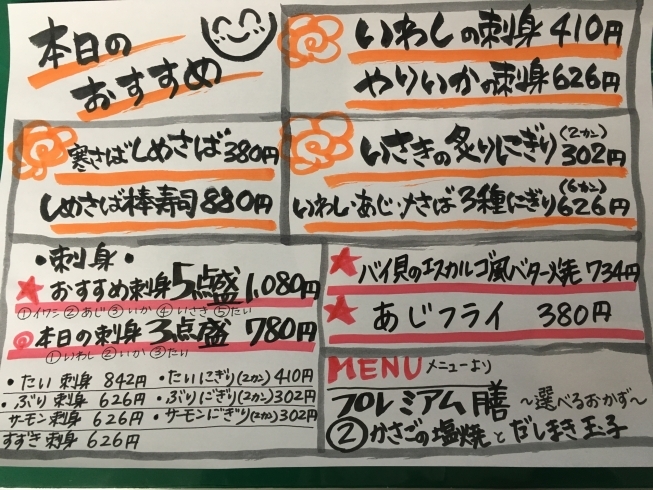 本日の
おすすめ
いわしの刺身 410円
やりいかの刺身 626円
寒さばしめさば 380円
しめさば棒寿司 880円
いさきの炙りにぎり(2カン) 302円
いわし・あじ・〆さば 3種にぎり(6カン) 626円
・刺身・
おすすめ刺身5点盛 1,080円
①イワシ ②あじ ③いか ④いさき ⑤たい
本日の刺身3点盛 780円
①いわし ②いか ③たい
・たい刺身 842円 ・たいにぎり(2カン) 410円
・ぶり刺身 626円 ・ぶりにぎり(2カン) 302円
サーモン刺身 626円 ・サーモンにぎり(2カン) 302円
すずき刺身 626円
バイ貝のエスカルゴ風バター焼 734円
あじフライ 380円
MENU メニューより
プレミアム膳 ～選べるおかず～
②かさごの塩焼とだしまき玉子